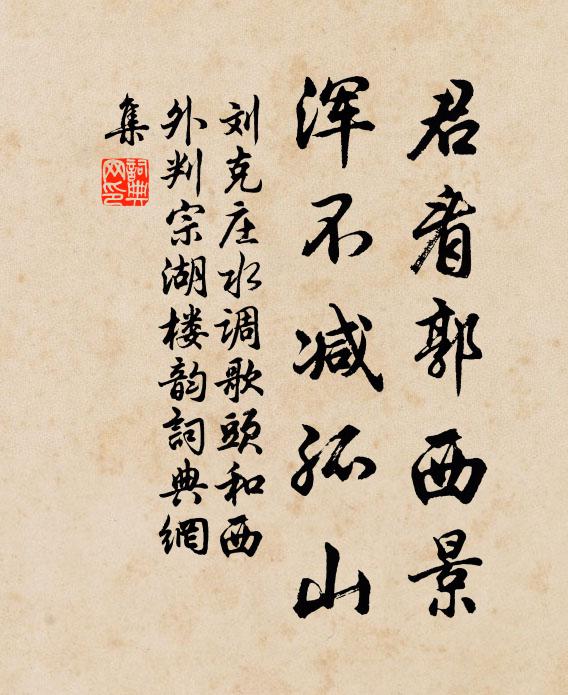 君看郭西景
浑不减孤山
刘克庄水调歌头和西
外判宗湖楼韵詞典網
集
詞典
网印